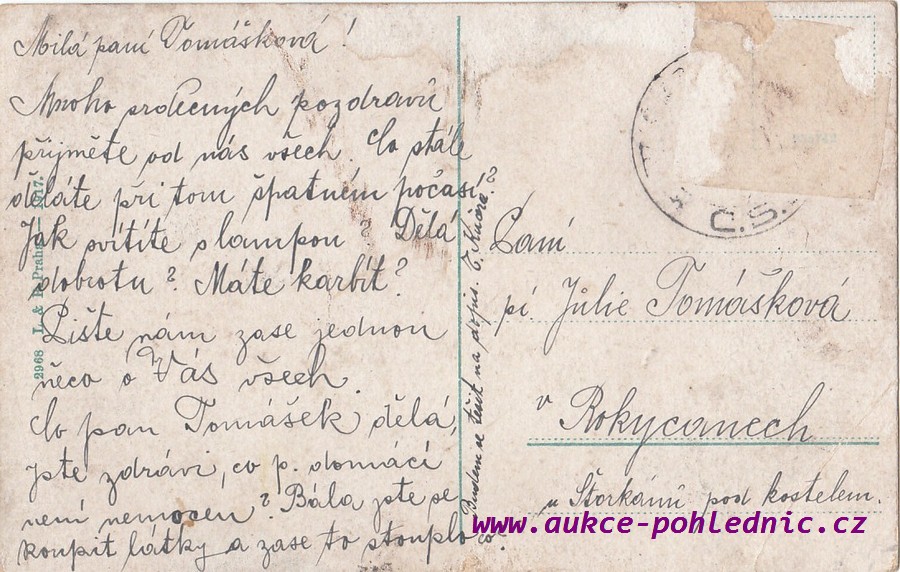 Milá paní Tomášková!
Mnoho srdečných pozdravů
přijměte od nás všech. Co stále
děláte při tom špatném počasí?
Jak svítíte s lampou? Dělá
dobrotu? Máte karbit?
Pište nám zase jednou
něco o Vás všech.
Co pan Tomášek dělá,
jste zdrávi, co p. domácí
není nemocen? Bála jste se
koupit látky a zase to stouplo co?
Budem se těšit na dopis.
2968 L. & P. Praha 1917.
Č.S.
Paní
pí Júlie Tomášková
v Rokycanech
u Štorkánů pod kostelem.
www.aukce-pohlednic.cz